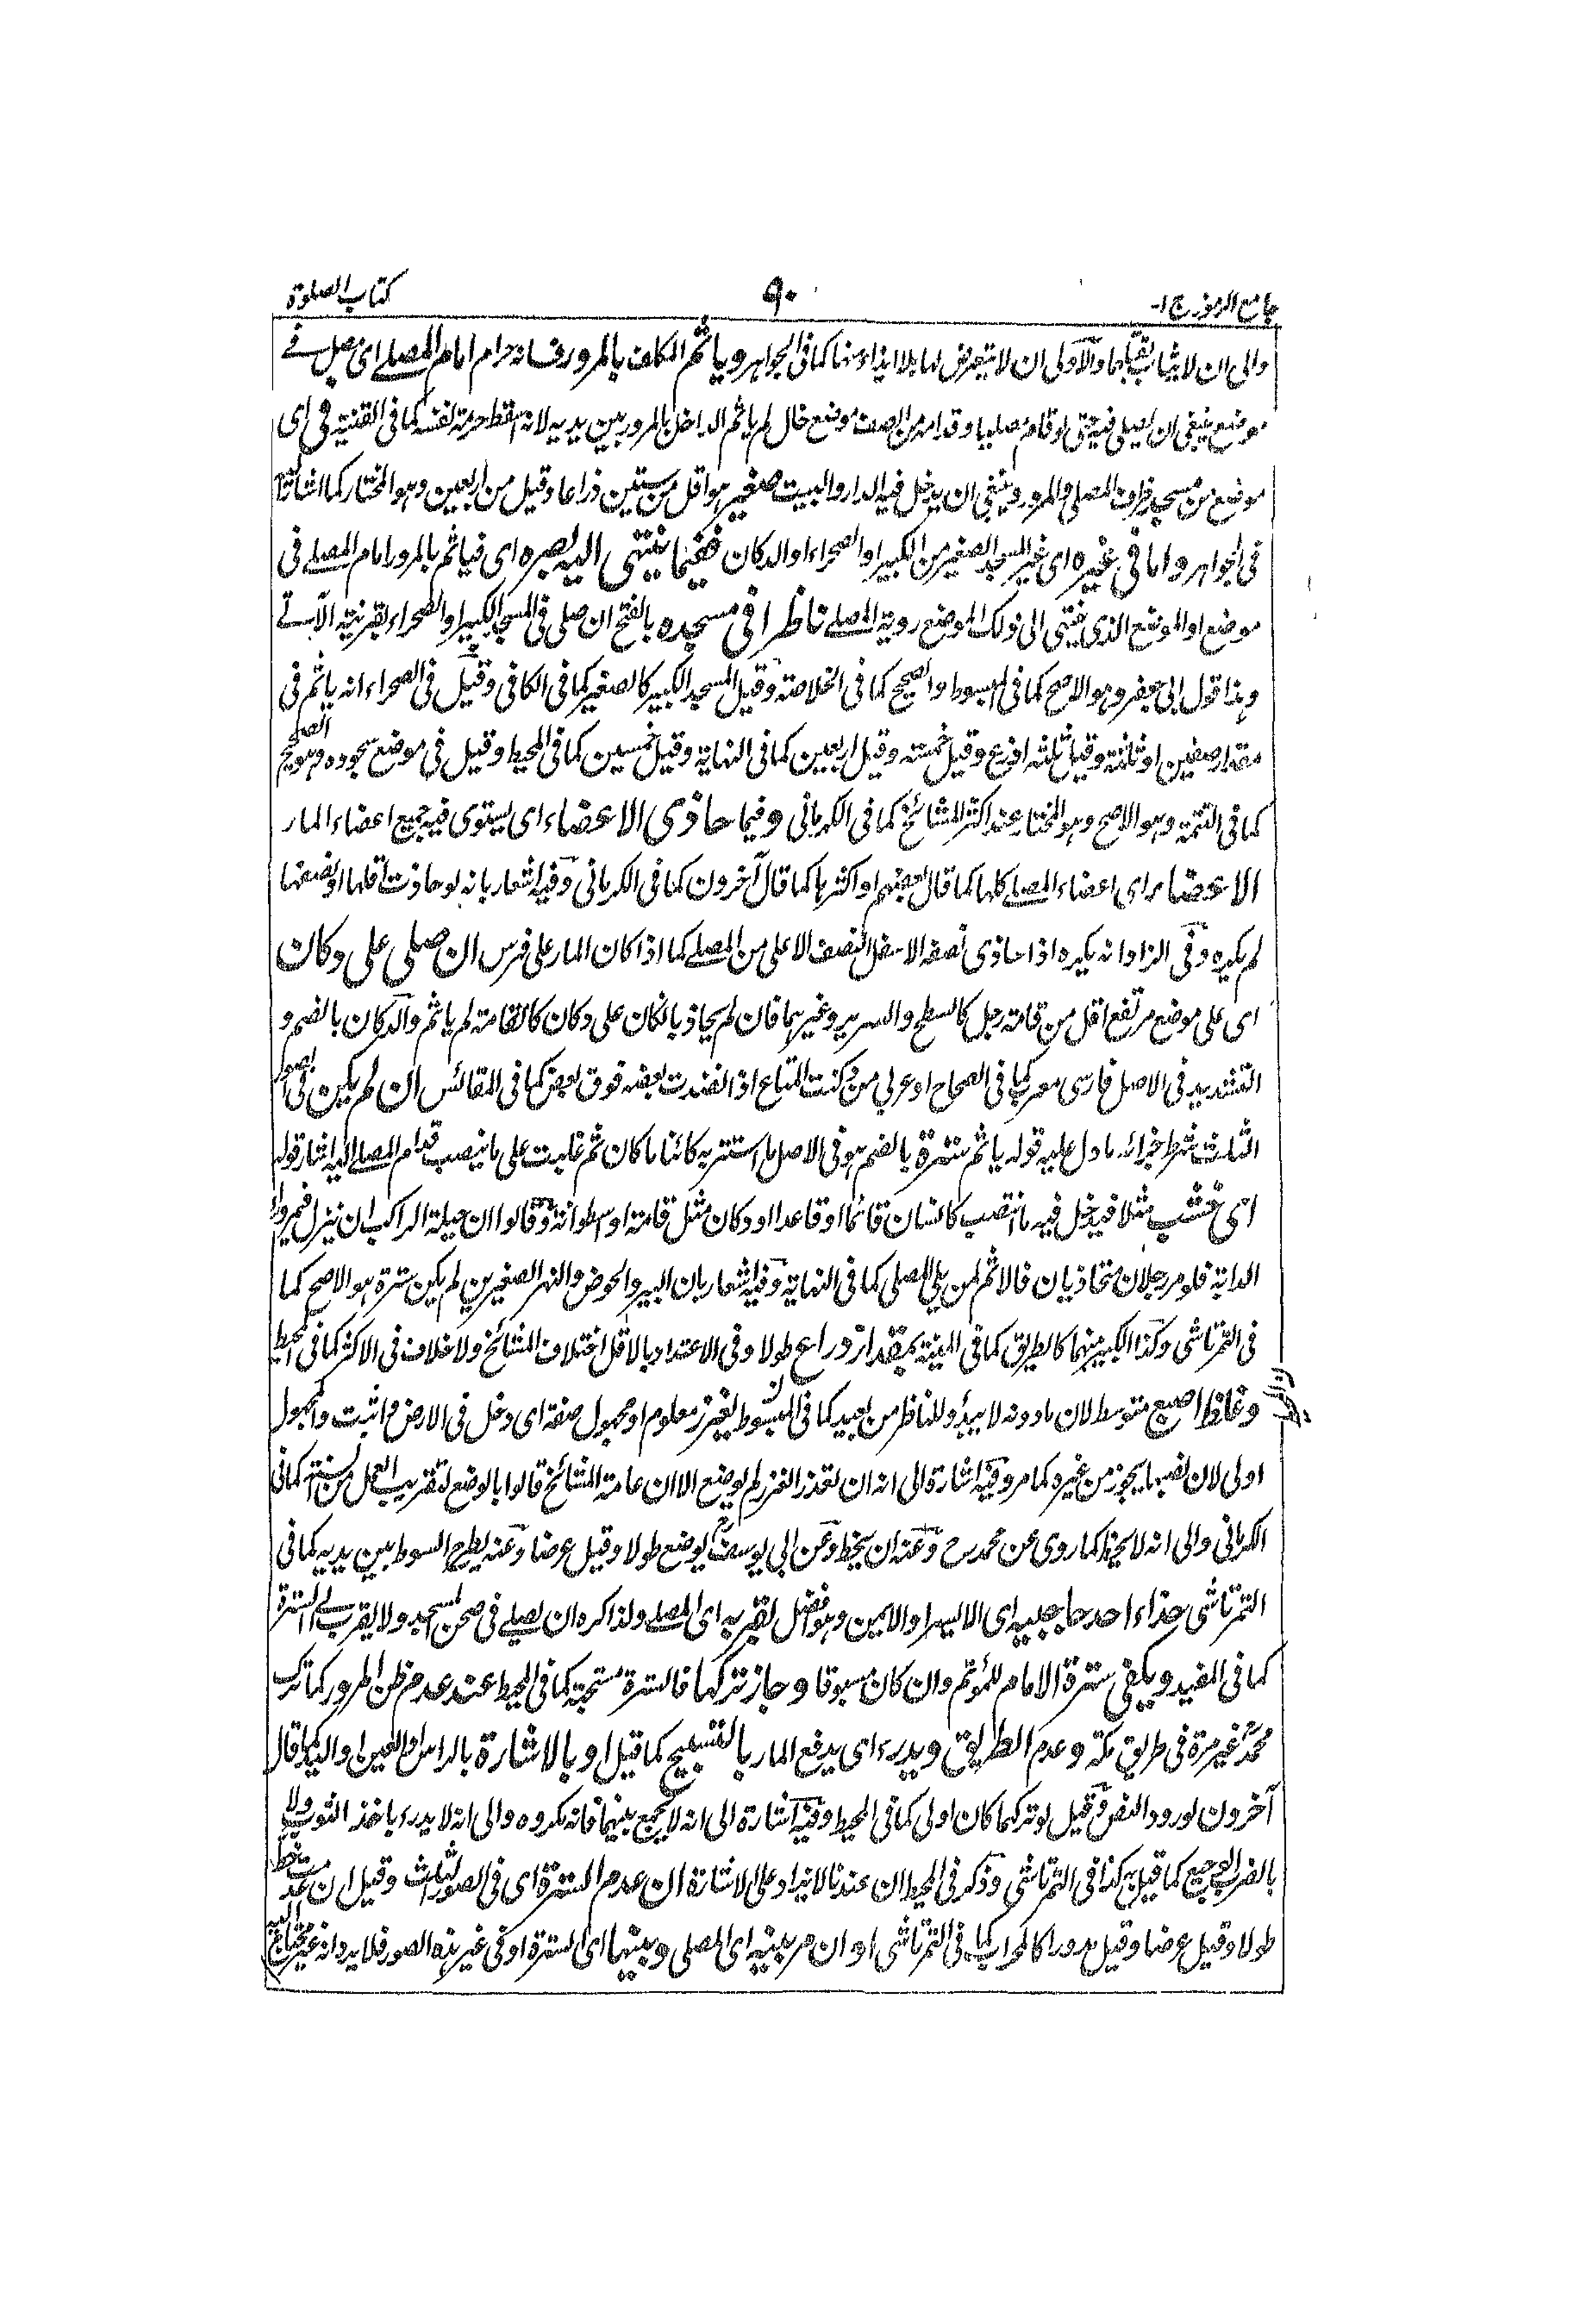 جامع الرموز ج ١-
٩٠
كتاب الصلوة
والى ان لا يثاب بقتلها والاولى ان لا يتعرض لها بلا ايذاء منها كما فى الجواهر و ياثم المكلف بالمرور فانه حرام امام المصلے اى مصل فے
موضع ينبغى ان يصلى فيه حتى لو قام مصليا وقدامه من الصف موضع خال لم ياثم الداخل بالمرور بين يديه لانه اسقط حرمة نفسه كما فى القنية فى اى
موضع من مسجد ظرف المصلى والمرور وينبغى ان يدخل فيه الدار والبيت صغير هو اقل من ستين ذراعا وقيل من اربعين وهو المختار كما اشار اليه
فى الجواهر و اما فى غيره اى غير المسجد الصغير من الكبير او الصحراء او الدكان ففيما ينتهى اليه بصره اى فياثم بالمرور امام المصلے فى
موضع او الموضع الذى ينتهى الى ذلك الموضع روية المصلے ناظرا فى مسجده بالفتح ان صلى فى المسجد الكبير او الصحراء بقرينة الآتے
وهذا قول ابى جعفر وهو الاصح كما فى المبسوط والصحيح كما فى الخلاصة وقيل المسجد الكبير كالصغير كما فى الكافى وقيل فى الصحراء انه ياثم فى
مقدار صفين او ثلثة وقيل ثلثة اذرع وقيل خمسة وقيل اربعين كما فى النهاية وقيل خمسين كما فى المحيط وقيل فى موضع سجوده وهو الصحيح
كما فى التتمة وهو الاصح وهو المختار عند اكثر المشائخ كما فى الكرمانى وفيما حاذى الاعضاء اى يستوى فيه جميع اعضاء المار
الاعضاء اى اعضاء المصلے كلها كما قال بعضهم او اكثرها كما قال آخرون كما فى الكرمانى وفيه اشعار بانه لو حاذت اقلها او نصفها
لم يكره وفى الزاد انه يكره اذا حاذى نصفه الاسفل النصف الاعلى من المصلے كما اذا كان المار على فرس ان صلى على دكان
اى على موضع مرتفع اقل من قامة رجل كالسطح والسرير وغيرهما فان لم يحاذ بان كان على دكان كالقامة لم ياثم والدكان بالضم و
التشديد فى الاصل فارسى معرب كما فى الصحاح او عربى من دكنت المتاع اذا نضدت بعضه فوق بعض كما فى المقائس ان لم يكن فى الصور
الثلث شرط جزائه ما دل عليه قوله ياثم سترة بالضم هو فى الاصل ما استتر به كائنا ما كان ثم غلبت على ما ينصب قدام المصلے اليه اشار قوله
اى خشب مثلا فيدخل فيه ما انتصب كانسان قائما او قاعدا او دكان مثل قامة او اسطوانة وقالوا ان حيلة الراكب ان ينزل فيمر وراء
الدابة فلو مر رجلان متحاذيان فالاثم لمن يلى المصلى كما فى النهاية وفيه اشعار بان البير والحوض والنهر الصغيرين لم يكن سترة هو الاصح كما
فى التمرتاشى وكذا الكبير منهما كالطريق كما فى المنية بمقدار ذراع طولا وفى الاعتداد بالاقل اختلاف المشائخ ولا خلاف فى الاكثر كما فى المحيط
وغلظ اصبع متوسط لان ما دونه لا يبدو للناظر من بعيد كما فى المبسوط يغرز معلوم او مجهول صفة اى دخل فى الارض و اثبت والمجهول
اولى لان نصبها يجوز من غيره كما مر وفيه اشارة الى انه ان تعذر الغرز لم يوضع الا ان عامة المشائخ قالوا بالوضع لتقريب العمل من السنة كما فى
الكرمانى والى انه لا يخط كما روى عن محمد رح وعنه ان يخط وعن ابى يوسف يوضع طولا وقيل عرضا وعنه يطرح السوط بين يديه كما فى
التمرتاشى حذاء احد حاجبيه اى الايسر او الايمن وهو افضل بقربه اى المصلے ولذا كره ان يصلے فى صحن المسجد ولا يقرب الى السترة
كما فى المفيد ويكفى سترة الامام للمؤتم وان كان مسبوقا و جاز تركها فالسترة مستحبة كما فى المحيط عند عدم ظن المرور كما ترك
محمد غير مرة فى طريق مكة و عدم الطريق ويدرء اى يدفع المار بالتسبيح كما قيل او بالاشارة بالراس او العين او اليد كما قال
آخرون لورود النص وقيل لو تركهما كان اولى كما فى المحيط وفيه اشارة الى انه لا يجمع بينهما فانه مكروه والى انه لا يدرء باخذ الثوب ولا
بالضرب الوجيع كما قيل به كذا فى التمرتاشى وذكر فى المحيط ان عندنا لا يزاد على الاشارة ان عدم السترة اى فى الصور الثلث وقيل ان عدمت خط
طولا وقيل عرضا وقيل مدورا كالمحراب كما فى التمرتاشى او ان مر بينه اى المصلى وبينها اى السترة او فى غير هذه الصور فلا يرد انه غير محتاج اليه